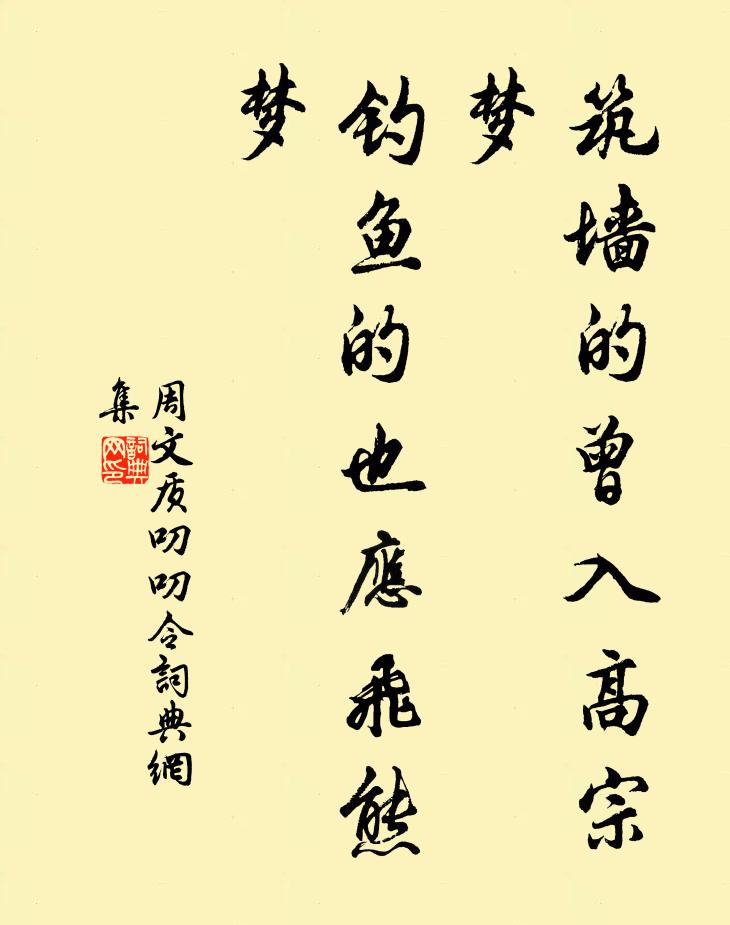 筑墙的曾入高宗
梦
钓鱼的也應飛熊
梦
周文质叨叨令詞典網
集
詞典
网印